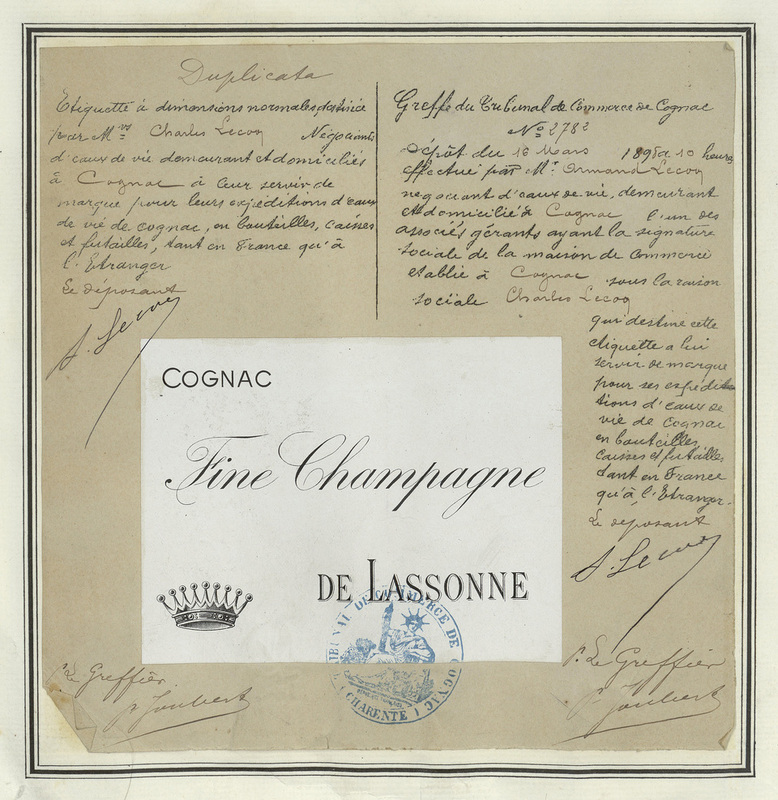 Duplicata
Etiquette à dimensions normales, destinée
par Mrs Charles Lecoq Négociants
d'eaux de vie demeurant et domiciliés
à Cognac à leur servir de
marque pour leurs expéditions d'eaux
de vie de cognac, en bouteilles, caisses
et futailles, tant en France qu'à
l'Etranger
Le déposant
A. Lecoq
Greffe du Tribunal de Commerce de Cognac
No 2782
Dépôt du 16 Mars à 10 heures
effectué par Mr. Armand Lecoq
négociant d'eaux de vie, demeurant
et domicilié à Cognac l'un des
associés gérants ayant la signature
sociale de la maison de commerce
etablie à Cognac sous la raison
sociale Charles Lecoq
qui destine cette
étiquette a lui
servir de marque
pour ses expédi-
tions d'eaux de
vie de cognac
en bouteilles,
caisses et futailles
tant en France
qu'à l'Etranger.
Le déposant
A. Lecoq
COGNAC
Fine Champagne
DE LASSONNE
TRIBUNAL DE COMMERCE DE COGNAC
(CHARENTE)
Le Greffier
Joubert
Le Greffier
Joubert